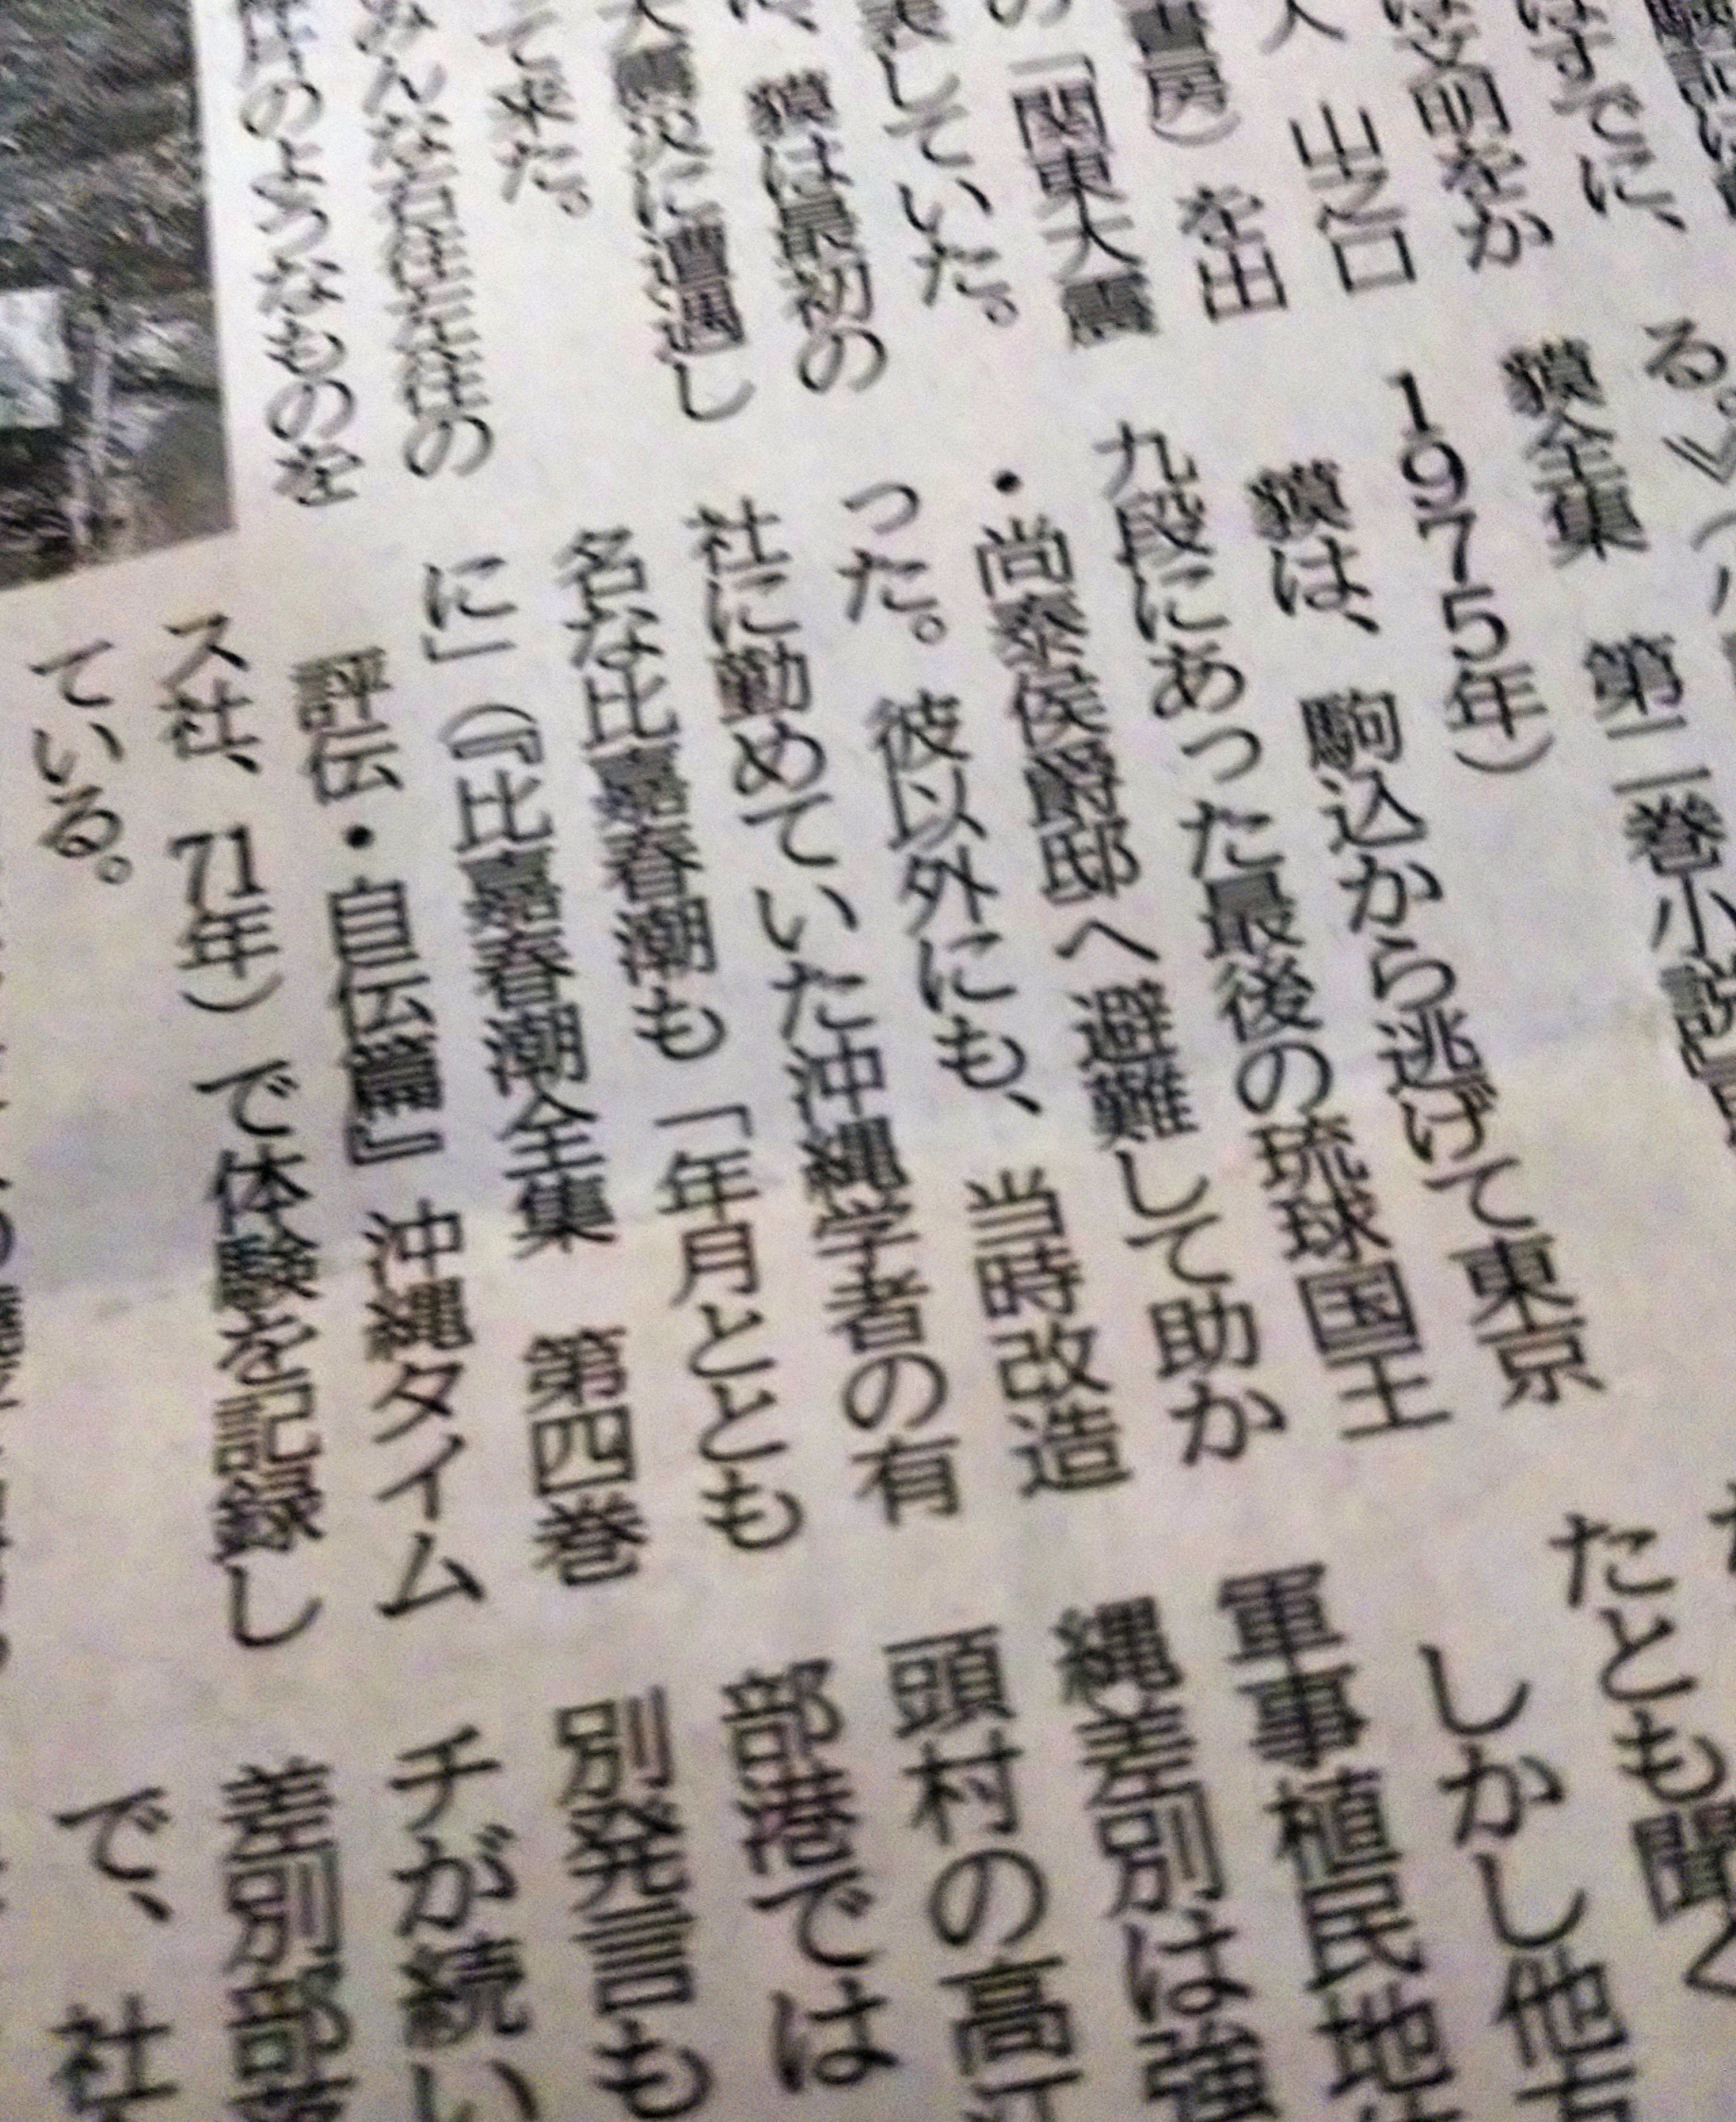 はすでに、
は文明をか
人　山之口
書房）を出
の「関東大震
表していた。
、貘は最初の
大震災に遭遇し
て来た。
みんな右往左往の
のようなものを
る。》
貘全集　第二巻小説
1975年）
貘は、駒込から逃げて東京
九段にあった最後の琉球国王
・尚泰侯爵邸へ避難して助か
った。彼以外にも、当時改造
社に勤めていた沖縄学者の有
名な比嘉春潮も「年月ととも
に」（『比嘉春潮全集　第四巻
評伝・自伝篇』沖縄タイム
ス社、71年）で体験を記録し
ている。
たとも聞く
しかし他
軍事植民地
縄差別は強
頭村の高
部港では
別発言も
チが続い
差別部
で、社